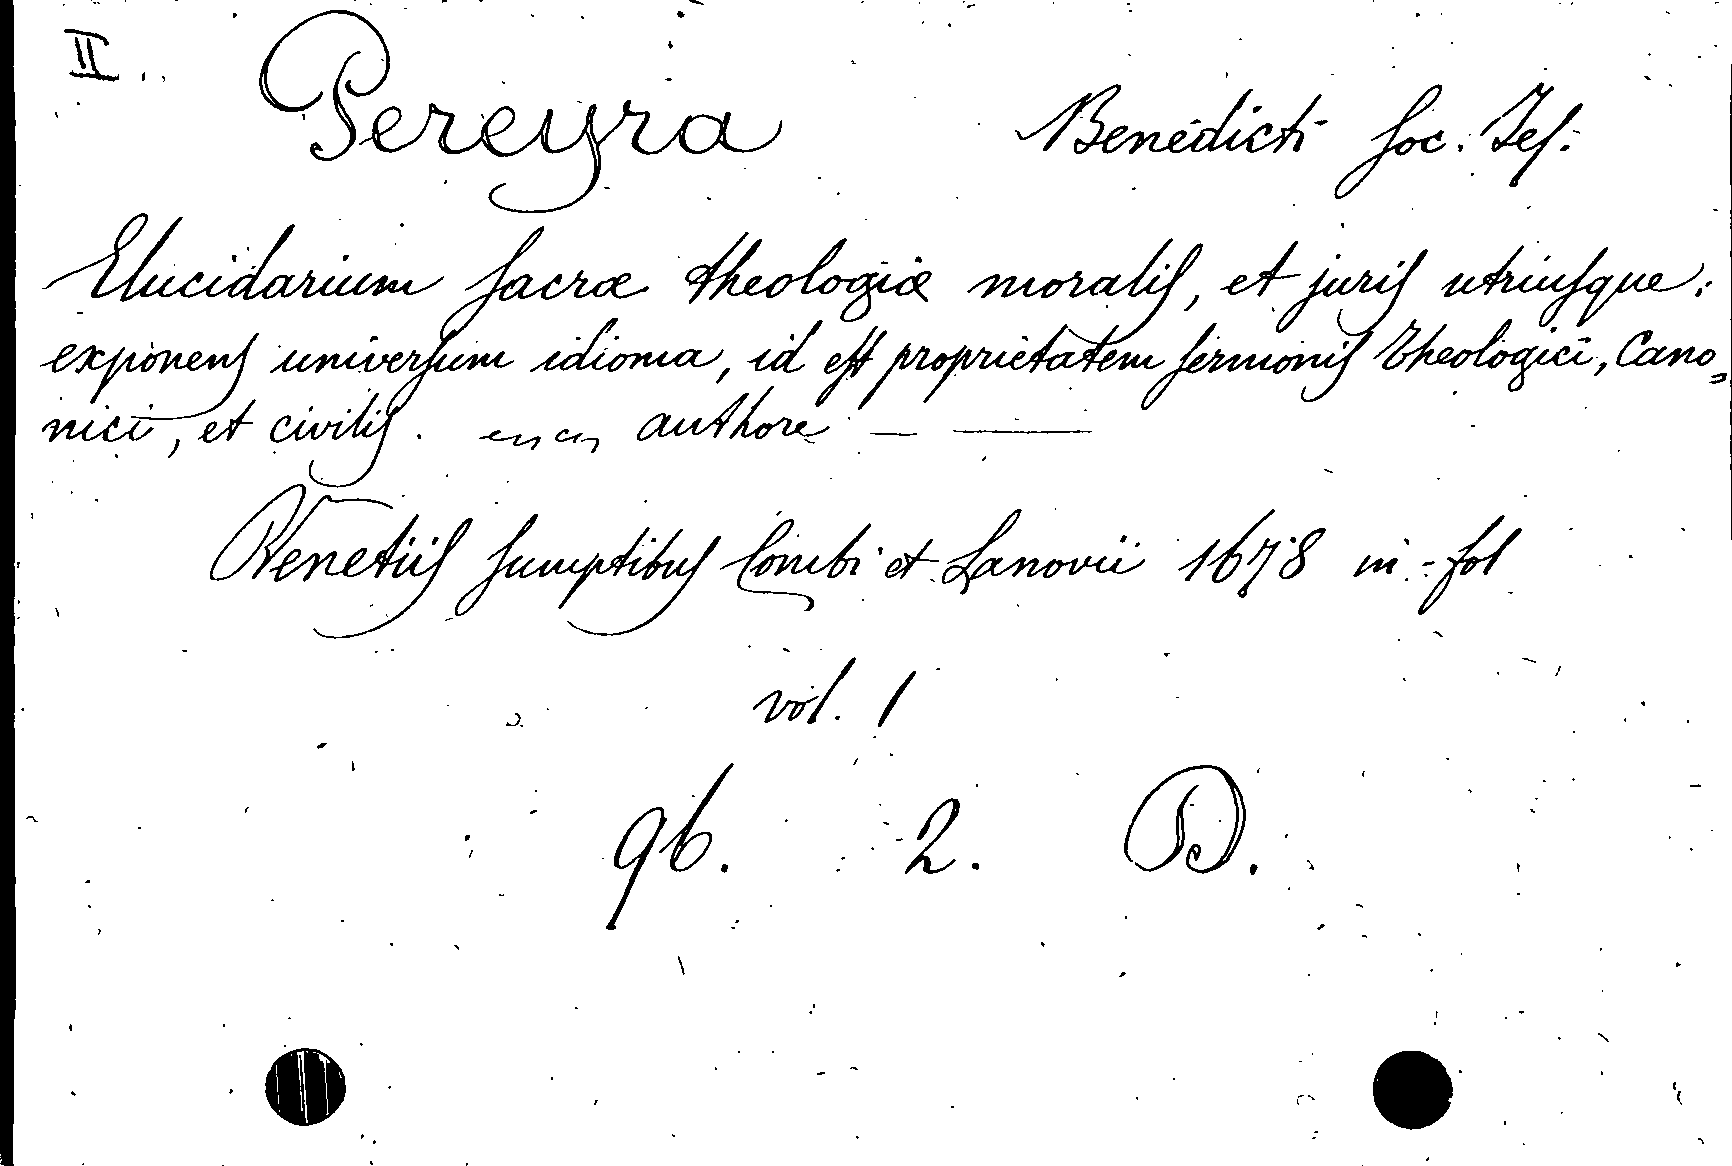 II.
Pereyra Benedicti Soc. Jes:
Elucidarium sacræ theologiæ moralis, et juris utriusque:
exponens universum idioma, id est proprietatem sermonis Theologici, Cano„
nici, et civilis. authore — ——
Venetiis sumptibus Combi et Lanovii 1678 in-fol
vol. 1
96. 2. D.